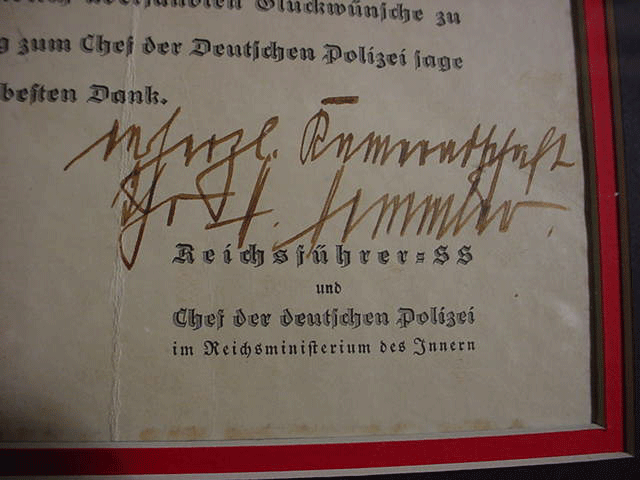 übersandten Glückwünsche zu
g zum Chef der Deutschen Polizei sage
besten Dank.
in herzl. Kameradschaft
Ihr H. Himmler.
Reichsführer=SS
und
Chef der deutschen Polizei
im Reichsministerium des Innern